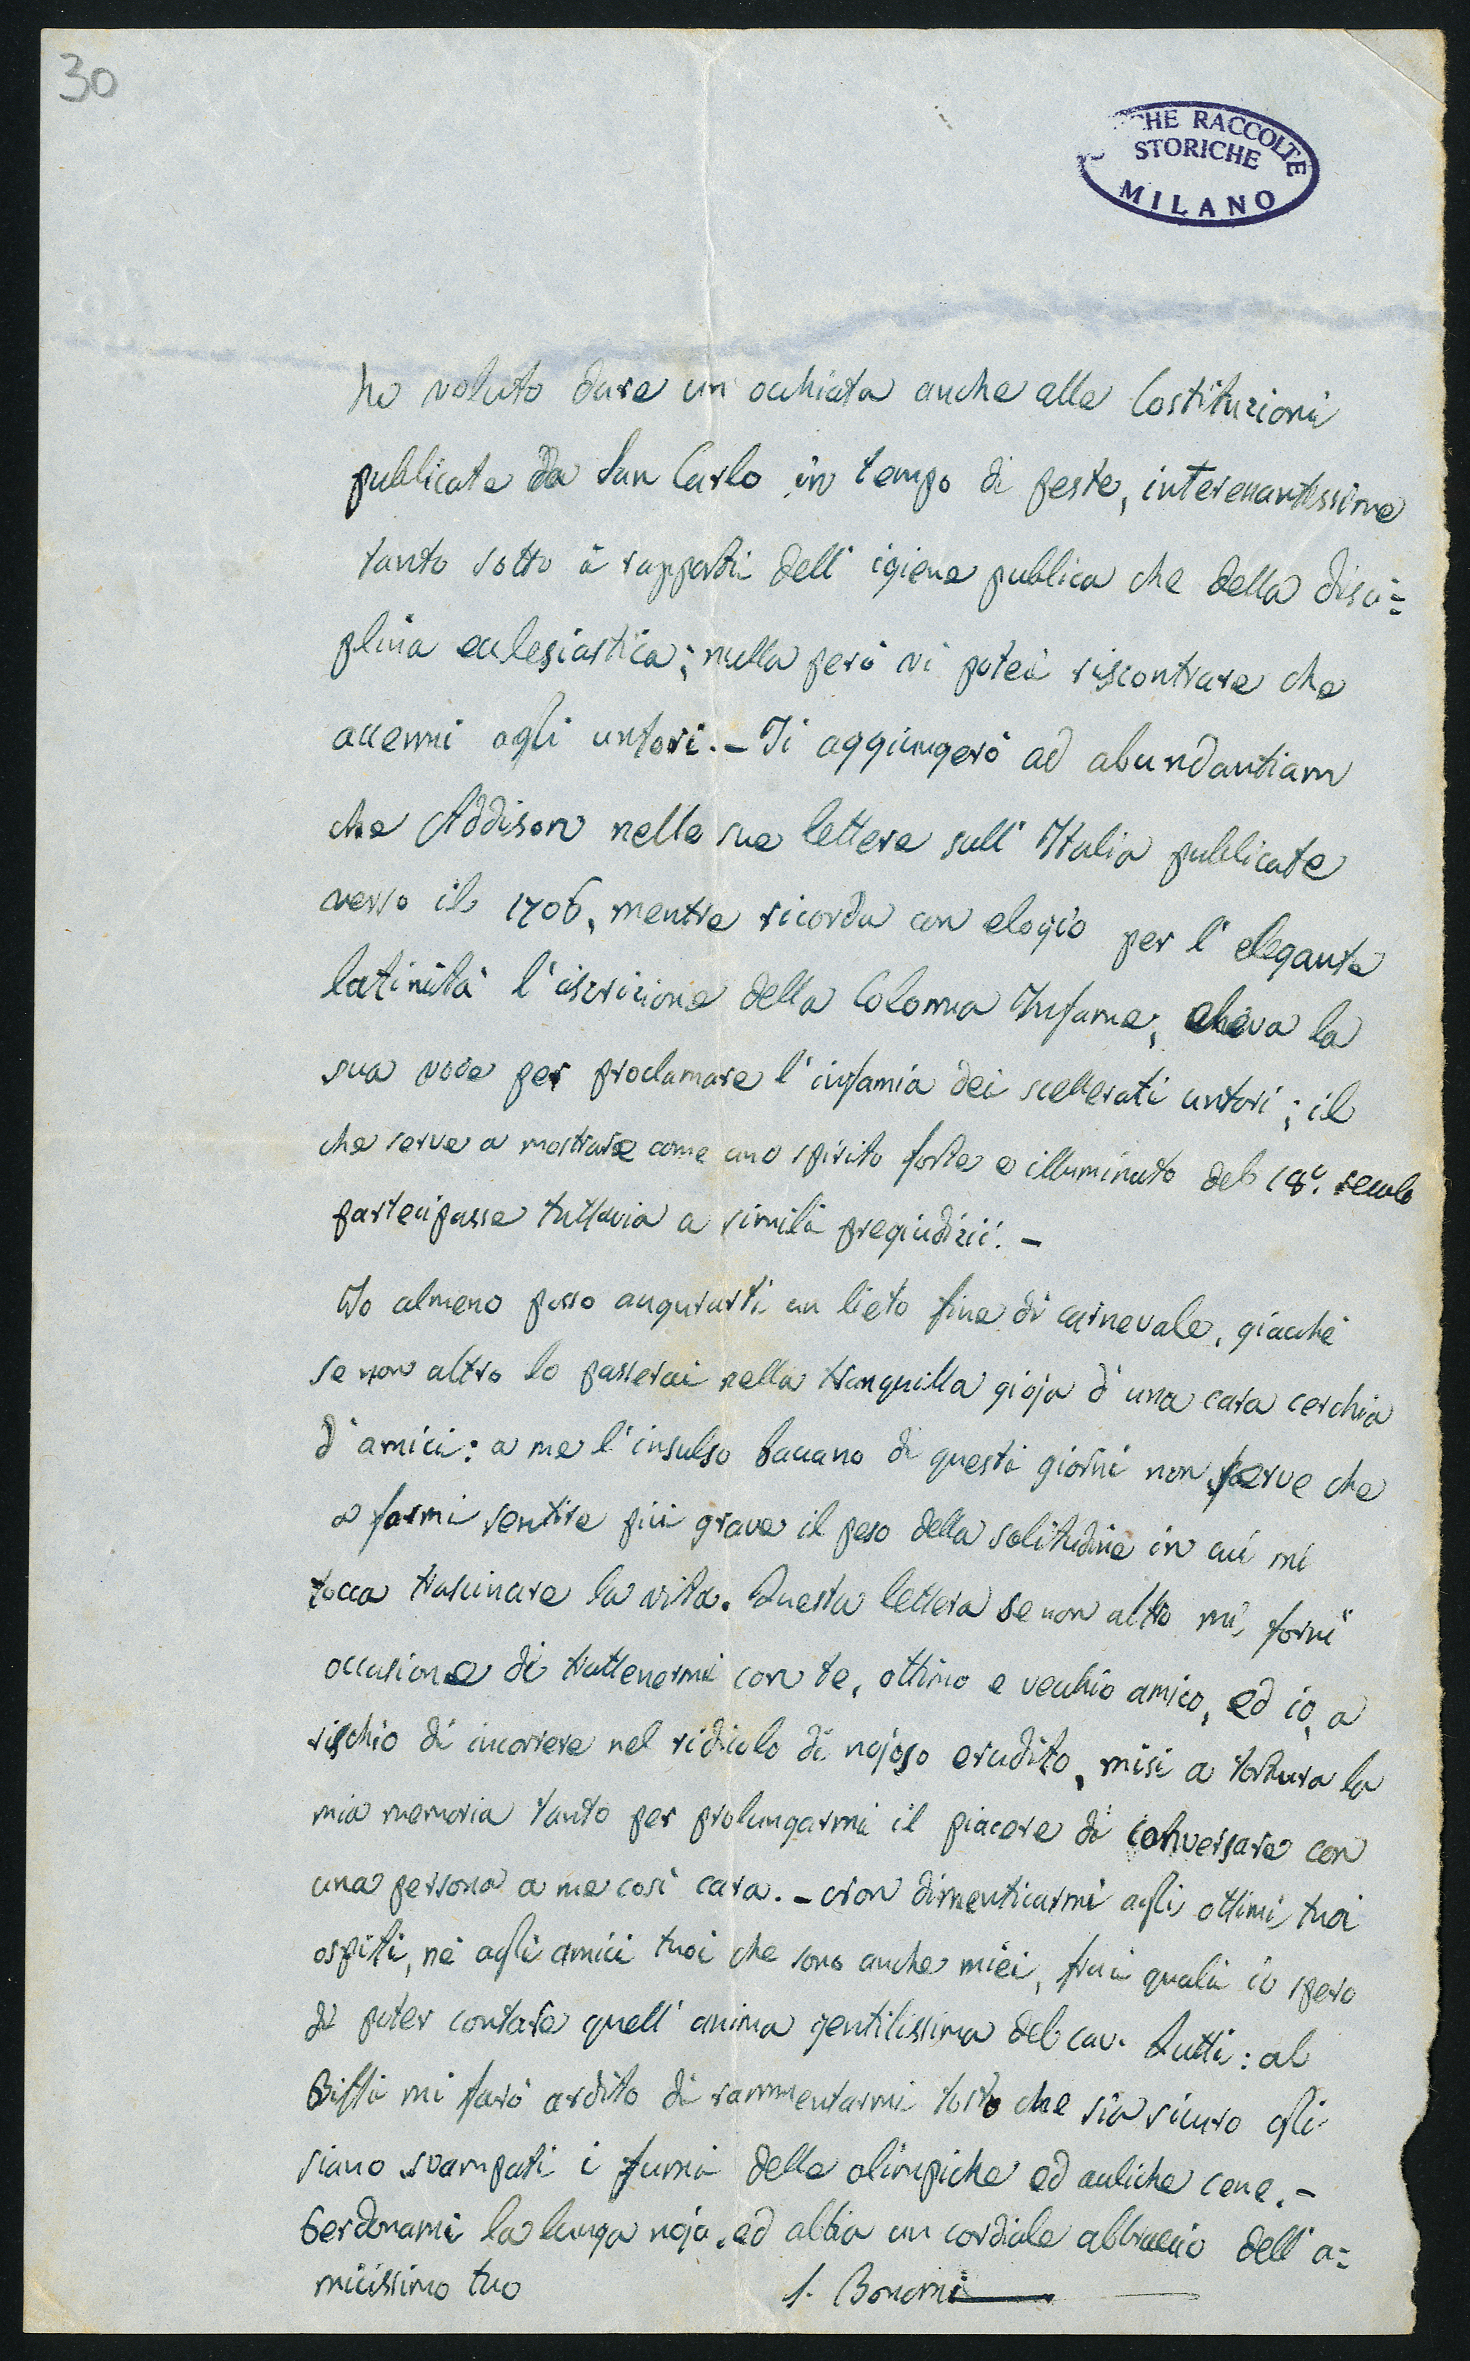 30
CHE RACCOLTE
STORICHE
MILANO
ho voluto dare un occhiata anche alle Costituzioni
pubblicate da San Carlo in tempo di peste, interessantissime
tanto sotto i rapporti dell' igiene pubblica che della disci=
plina ecclesiastica; nulla però vi potei riscontrare che
accenni agli untori. - Ti aggiungerò ad abundantiam
che Addison nelle sue lettere sull' Italia pubblicate
verso il 1706, mentre ricorda con elogio per l' elegante
latinità l' iscrizione della Colonna Infame, eleva la
sua voce per proclamare l' infamia dei scellerati untori; il
che serve a mostrare come uno spirito forte e illuminato del 18º. secolo
partecipasse tuttavia a simili pregiudizii. -
Io almeno posso augurarti un lieto fine di carnevale, giacchè
se non altro lo passerai nella tranquilla gioja d' una cara cerchia
d' amici: a me l' insulso baccano di questi giorni non serve che
a farmi sentire più grave il peso della solitudine in cui mi
tocca trascinare la vita. Questa lettera se non altro mi fornì
occasione di trattenermi con te, ottimo e vecchio amico, ed io, a
rischio di incorrere nel ridicolo di nojoso erudito, misi a tortura la
mia memoria tanto per prolungarmi il piacere di conversare con
una persona a me così cara. - Non dimenticarmi agli ottimi tuoi
ospiti, nè agli amici tuoi che sono anche miei, frai quali io spero
di poter contare quell' anima gentilissima del cav. : al
Biffi mi farò ardito di rammentarmi tosto che sia sicuro gli
siano svampati i fumi delle olimpiche ed auliche cene. -
Perdonami la lunga noja, ed abbia un cordiale abbraccio dell' a=
micissimo tuo
S. Bonomi